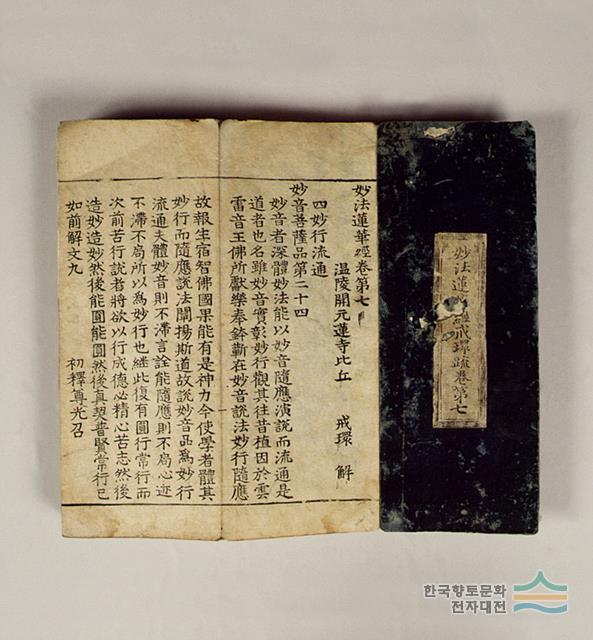 妙法蓮經戒環疏卷第七
妙法蓮華經卷第七
温陵開元蓮寺比丘 戒環 解
四妙行流通
妙音菩薩品第二十四
妙音者深體妙法能以妙音隨應演說而流通是
道者也名雖妙音實彰妙行觀其往昔植因於雲
雷音王佛所獻樂奉鉢蘄在妙音說法妙行隨應
故報生宿智佛國果能有是神力今使學者體其
妙行而隨應說法闡揚斯道故說妙音品爲妙行
流通夫體妙音則不滯言詮能隨應則不局心迹
不滯不局所以爲妙行也継此復有圓行常行而
次前苦行說者將欲以行成德必精心苦志然後
造妙造妙然後能圓能圓然後眞契普賢常行已
如前解文九 初釋尊光召
한국향토문화
전자대전